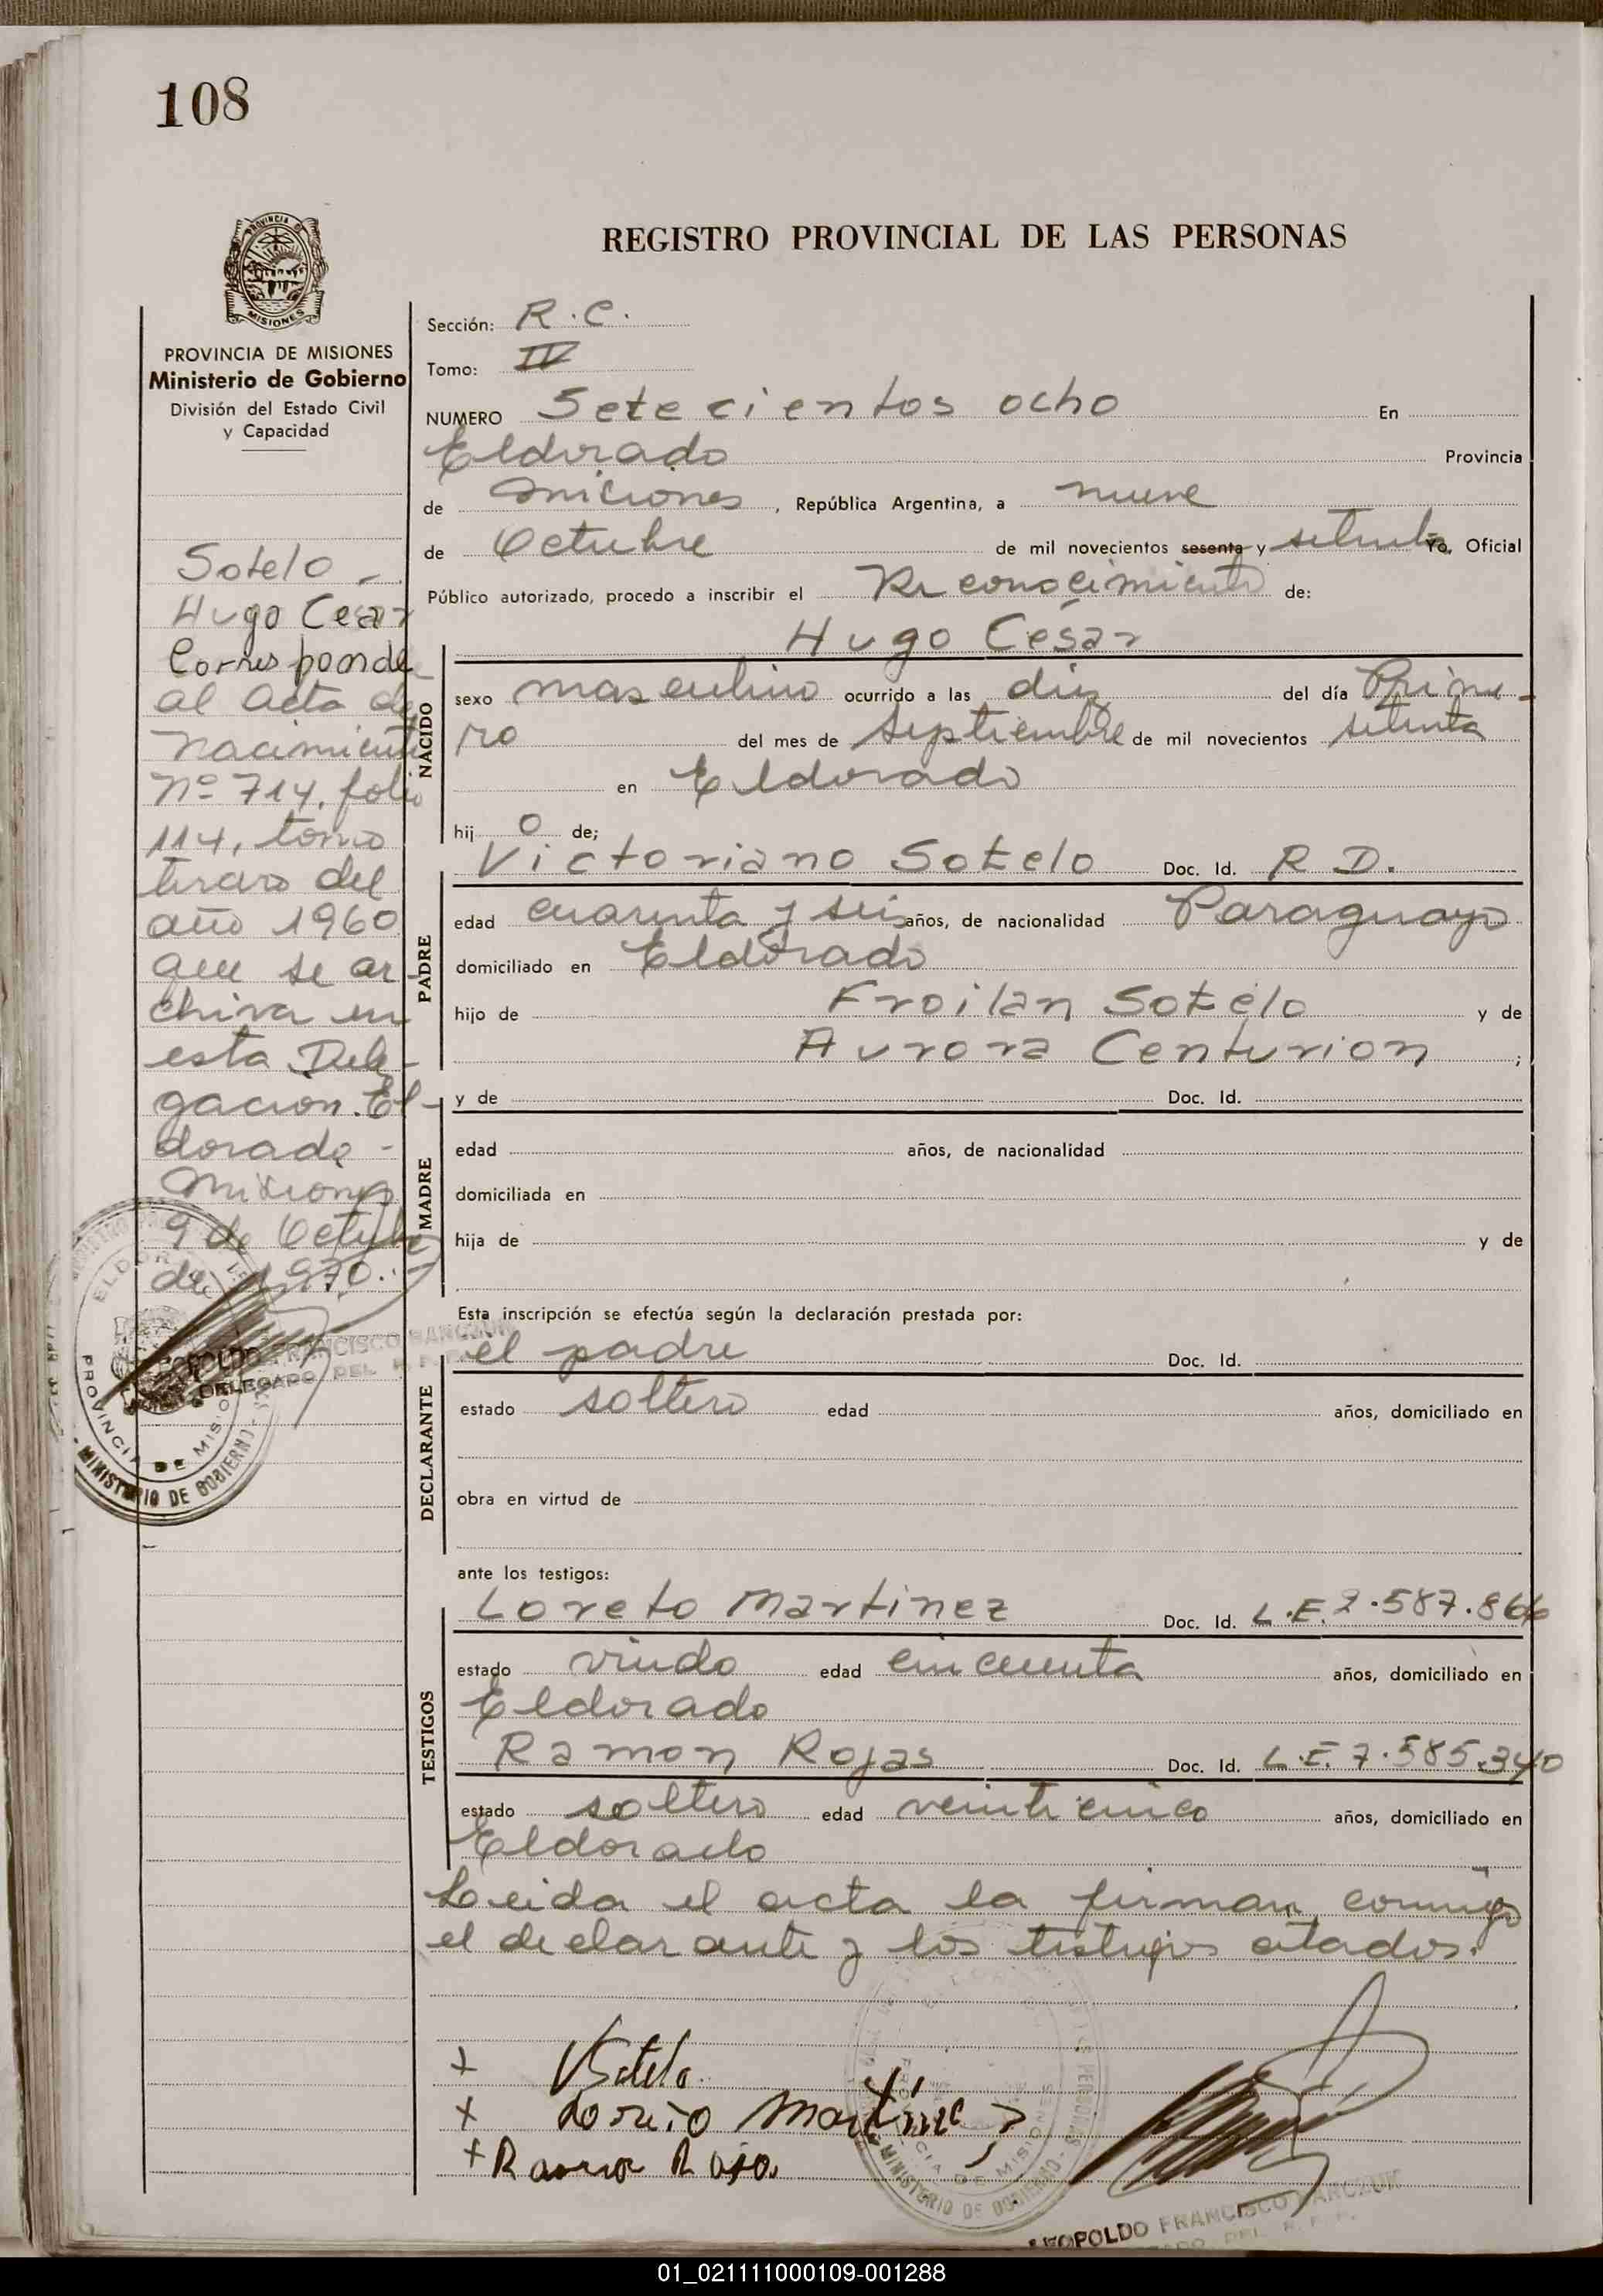 108
PROVINCIA DE MISIONES
Ministerio de Gobierno
División del Estado Civil
y Capacidad
Sotelo -
Hugo César
Corresponde
al acta de
nacimiento
Nº 714, folio
114, tomo
del
año 1960
que se ar
chiva en
esta Dele
gacion. El-
dorado -
Misiones
9 de Octubre
de 1970.
REGISTRO PROVINCIAL DE LAS PERSONAS
Sección: R.C.
Tomo: IV
NUMERO Setecientos ocho En
Eldorado Provincia
de Misiones, República Argentina, a nueve
de Octubre de mil novecientos sesenta y setenta Yo, Oficial
Público autorizado, procedo a inscribir el Reconocimiento de:
Hugo César
NACIDO
sexo masculino ocurrido a las diez del día Prime-
ro del mes de Septiembre de mil novecientos setenta
en Eldorado
hij o de;
Victoriano Sotelo Doc. Id. R D.
PADRE
edad cuarenta y seis años, de nacionalidad Paraguayo
domiciliado en Eldorado
hijo de Froilan Sotelo y de
Aurora Centurion ;
y de Doc. Id.
MADRE
edad años, de nacionalidad
domiciliada en
hija de y de
Esta inscripción se efectúa según la declaración prestada por:
el padre Doc. Id.
DECLARANTE
estado soltero edad años, domiciliado en
obra en virtud de
ante los testigos:
Loreto Martinez Doc. Id. L.E. 2.587.866
TESTIGOS
estado viudo edad cincuenta años, domiciliado en
Eldorado
Ramon Rojas Doc. Id. L.E. 7.585.340
estado soltero edad veinticinco años, domiciliado en
Eldorado
Leida el acta la firman conmigo
el declarante y los testigos citados.
+ VSotelo.
+ Loreto Martinez
+ Ramon Rojas
PROVINCIA DE MISIONES
MINISTERIO DE GOBIERNO
LEOPOLDO FRANCISCO
DELEGADO DEL R. P. P.
MINISTERIO DE GOBIERNO
LEOPOLDO FRANCISCO
01_021111000109-001288